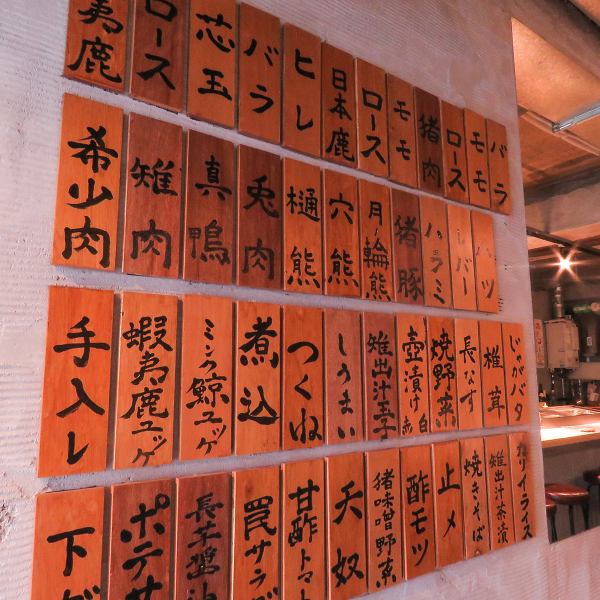 夷鹿
ロース
芯玉
バラ
ヒレ
日本鹿
ロース
モモ
猪肉
ロース
モモ
バラ
希少肉
雉肉
真鴨
兎肉
樋熊
穴熊
月ノ輪熊
猪豚
ハラミ
レバー
ハツ
手入レ
蝦夷鹿ユッケ
ミンク鯨ユッケ
煮込
つくね
しうまい
雉出汁玉子
壺漬け 白 赤
焼野菜
長なす
椎茸
じゃがバタ
下
ポテサ
長芋醤油
罠サラダ
甘酢トマト
天奴
猪味噌野菜
酢モツ
止メ
焼きそば
雉出汁茶漬
カリイライス